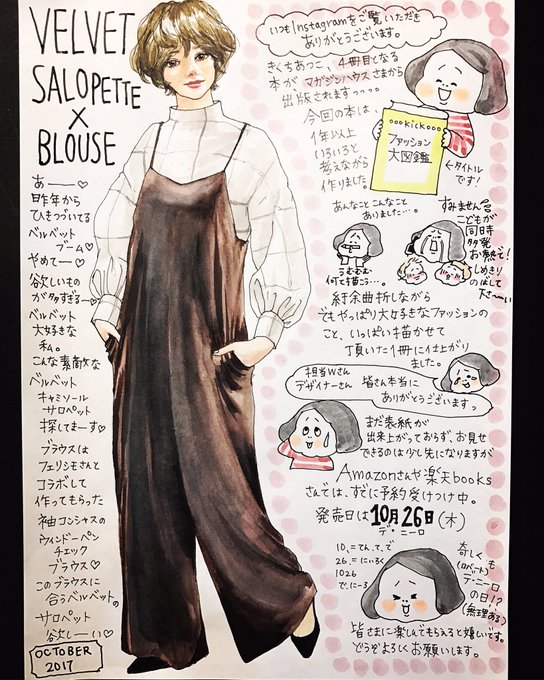 VELVET
SALOPETTE
×
BLOUSE
あ――♡
昨年から
ひきつづいてる
ベルベット
ブーム♡
やめてー♡
欲しいもの
が多すぎる―♡
ベルベット
大好きな
私。
こんな素敵な
ベルベット
キャミソール
サロペット
探してまーす♡
ブラウスは
フェリシモさんと
コラボして
作ってもらった
袖コンシャスの
ウィンドーペン
チェック
ブラウス♡
このブラウスに
合うベルベットの
サロペット
欲しーい♡
OCTOBER
2017
いつもInstagramをご覧いただき
ありがとうございます。
きくちあつこ、4冊目となる
本が マガジンハウスさまから
出版されますっっっっ
今回の本は、
1年以上
いろいろと
考えながら
作りました。
○○○kick○○○
ファッション
大図鑑
←タイトル
です!
あんなこと こんなこと
ありました…。
うむむむ
何て描こう…。
すみません
こどもが
同時
多発
お熱で!
しめきり
のばして
下さーーい
紆余曲折しながら
でもやっぱり大好きなファッションの
こと、いっぱい描かせて
頂いた1冊に仕上がり
ました。
担当Wさん
デザイナーさん 皆さん本当に
ありがとうございますっ
まだ表紙が
出来上がっておらず、お見せ
できるのは少し先になりますが
Amazonさんや楽天books
さんでは、すでに予約受けつけ中。
発売日は10月26日(木)
デ・ニーロ
10、=てん、て、で
26、=にぃろく
1026
で、にーろ
奇しくも
(ロバート)
デ・ニーロ
の日!?
(無理ある)
皆さまに楽しんでもらえると嬉しいです。
どうぞよろしくお願いします。